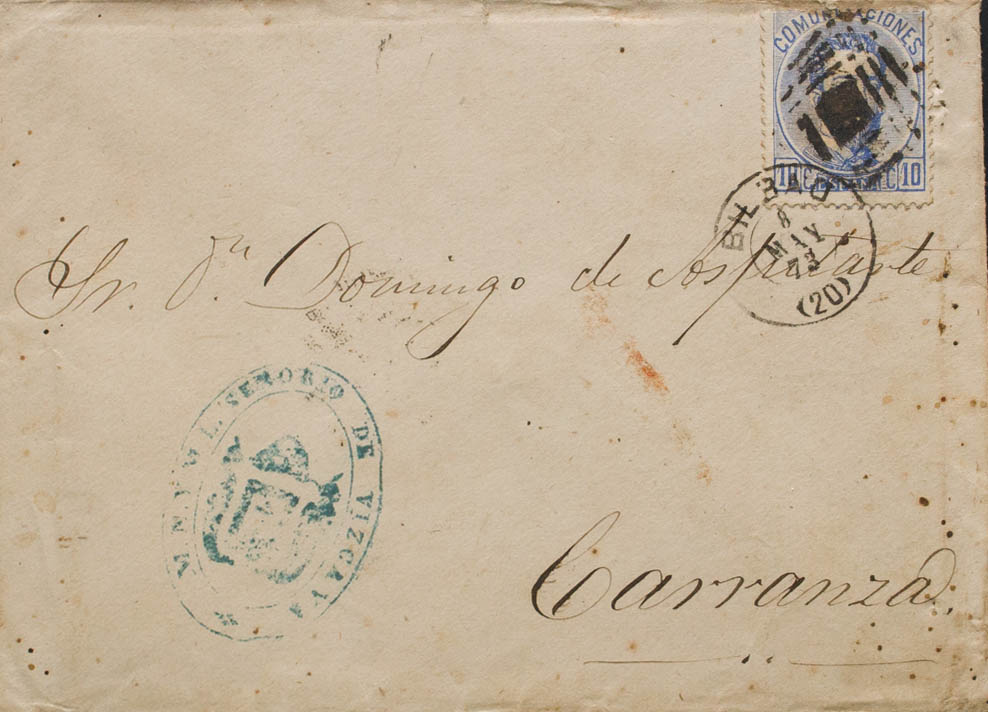 COMUNICACIONES
10 10
BILBAO
8
MAY
73
(20)
Sr. Dn. Domingo de
Carranza.
M. N. Y. M. L. SEÑORIO DE VIZCAYA